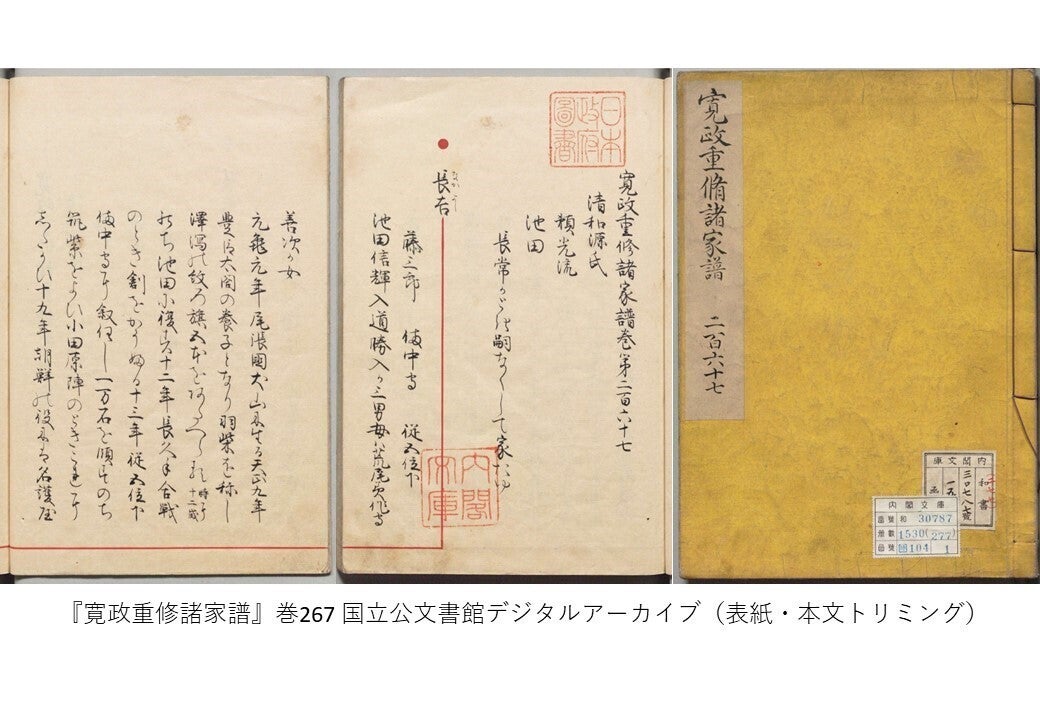 寛政重脩諸家譜　二百六十七
内閣文庫
和書
三〇七八七號
内閣文庫
番號 和 30787
冊數 1530(277)
函號 104 1
日本政府圖書
寛政重修諸家譜巻第二百六十七
清和源氏
頼光流
池田
長常がとき嗣なくして家たゆ
長吉
藤三郎　備中守　従五位下
池田信輝入道勝入が三男母は荒尾美作守
内閣文庫
善次が女
元亀元年尾張國犬山に生る天正九年
豊臣太閤の養子となり羽柴を称し
澤瀉の紋の旗五本をあたへらる 時に十二歳
のち池田に復す十二年長久手合戦
のとき創をかうぶる十三年従五位下
備中守に叙任し一万石を領すのち
筑紫をよび小田原陣のとき
したがひ十九年朝鮮の役には名護屋
『寛政重修諸家譜』巻267 国立公文書館デジタルアーカイブ（表紙・本文トリミング）